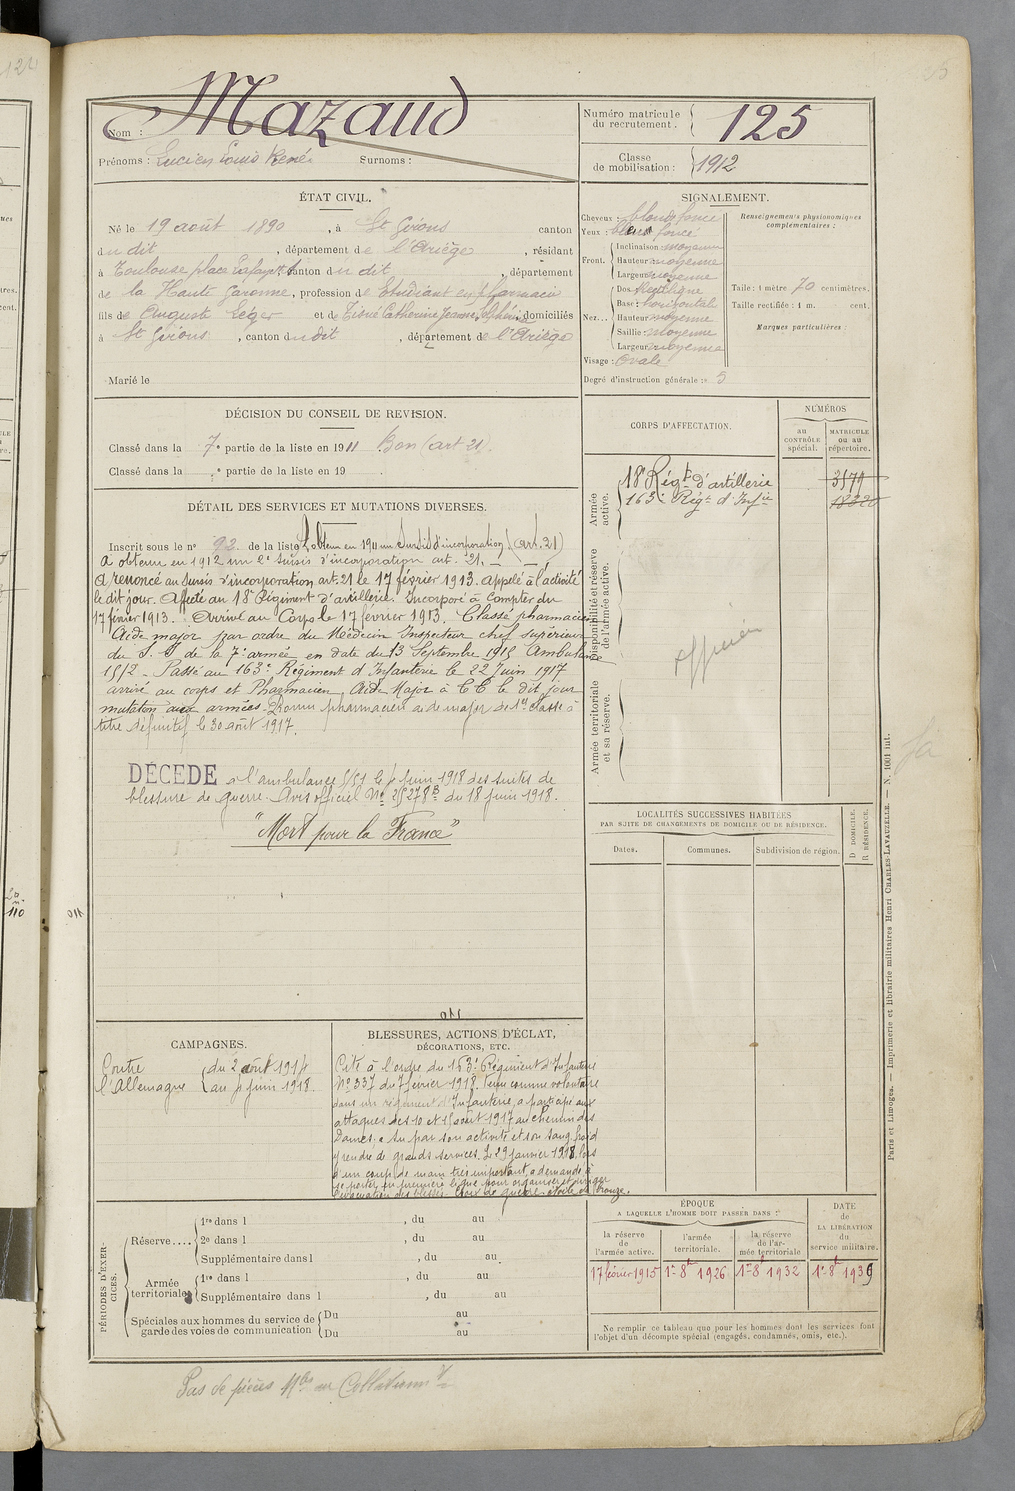 Mazaud
Nom :
Prénoms : Lucien Louis René Surnoms :
Numéro matricule du recrutement. 125
Classe de mobilisation : 1912
ÉTAT CIVIL.
Né le 19 août 1890, à St Girons canton
du dit, département de l'Ariège, résidant
à Toulouse place Lafayette canton du dit, département
de la Haute Garonne, profession de Etudiant en pharmacie
fils de Auguste Léger et de Tisné Catherine Jeanne domiciliés
à St Girons, canton du dit, département de l'Ariège
Marié le
SIGNALEMENT.
Cheveux : blond foncé
Yeux : bleu foncé
Front. Inclinaison moyenne
Hauteur moyenne
Largeur moyenne
Nez... Dos Rectiligne
Base : horizontale
Hauteur moyenne
Saillie : moyenne
Largeur moyenne
Visage : Ovale
Degré d'instruction générale : 3
Renseignements physionomiques complémentaires :
Taille : 1 mètre 70 centimètres.
Taille rectifiée : 1 m. cent.
Marques particulières :
DÉCISION DU CONSEIL DE REVISION.
Classé dans la 7e partie de la liste en 1911 Bon (art 21).
Classé dans la e partie de la liste en 19 .
DÉTAIL DES SERVICES ET MUTATIONS DIVERSES.
Inscrit sous le no 92 de la liste A obtenu en 1911 un sursis d'incorporation. (art. 21)
A obtenu en 1912 un 2e sursis d'incorporation art. 21.
A renoncé au sursis d'incorporation art. 21 le 17 février 1913. Appelé à l'activité
le dit jour. Affecté au 18e Régiment d'artillerie. Incorporé à compter du
17 février 1913. Arrivé au Corps le 17 février 1913. Classé pharmacien
Aide major par ordre du Médecin Inspecteur chef supérieur
du S. S de la 7e armée en date du 13 Septembre 1915 Ambulance
15/2 - Passé au 163e Régiment d'Infanterie le 22 Juin 1917
arrivé au corps et Pharmacien Aide Major à TC le dit jour
mutation aux armées. Promu pharmacien aide major de 1re classe à
titre définitif le 30 août 1917.
DÉCÉDÉ à l'ambulance 5/51 le juin 1918 des suites de
blessure de guerre. Avis officiel No du 18 juin 1918.
"Mort pour la France"
CORPS D'AFFECTATION.
NUMÉROS
au CONTRÔLE spécial.
MATRICULE ou au répertoire.
Armée active.
18e Régt d'artillerie 3179
163e Régt d'Infie 18320
Disponibilité et réserve de l'armée active.
Armée territoriale et sa réserve.
LOCALITÉS SUCCESSIVES HABITÉES
PAR SUITE DE CHANGEMENTS DE DOMICILE OU DE RÉSIDENCE.
Dates. Communes. Subdivision de région. D DOMICILE. R RÉSIDENCE.
110
CAMPAGNES.
Contre l'Allemagne
du 2 août 1914
au juin 1918.
BLESSURES, ACTIONS D'ÉCLAT,
DÉCORATIONS, ETC.
Cité à l'ordre du 163e Régiment d'Infanterie
No 337 du 7 février 1918. Venu comme volontaire
dans un régiment d'Infanterie, a participé aux
attaques des 10 et 15 août 1917 au chemin des
Dames. a su par son activité et son sang froid
y rendre de grands services. Le 29 janvier 1918, lors
d'un coup de main très important, a demandé à
se porter en première ligne pour organiser et diriger
l'évacuation des blessés. Croix de guerre. étoile de bronze.
PÉRIODES D'EXERCICES.
Réserve.... 1re dans l , du au
2e dans l , du au
Supplémentaire dans l , du au
Armée territoriale 1re dans l , du au
Supplémentaire dans l , du au
Spéciales aux hommes du service de garde des voies de communication Du au
Du au
ÉPOQUE
A LAQUELLE L'HOMME DOIT PASSER DANS :
la réserve de l'armée active.
l'armée territoriale.
la réserve de l'armée territoriale
DATE de LA LIBÉRATION du service militaire.
17 février 1915 1er 8bre 1926 1er 8bre 1932 1er 8bre 1939
Ne remplir ce tableau que pour les hommes dont les services font
l'objet d'un décompte spécial (engagés, condamnés, omis, etc.).
Paris et Limoges. — Imprimerie et librairie militaires Henri CHARLES-LAVAUZELLE. — N. 1001 int.
Pas de pièces